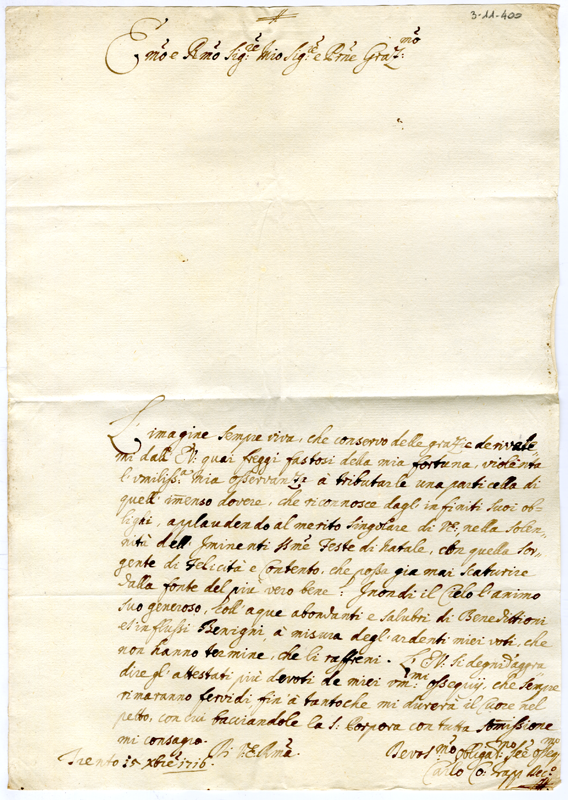 3-11-400
Emo e Rmo Sig:re Mio Sig:re e Prne Graz:mo
L'imagine sempre viva, che conservo delle grazie derivate
mi dall' E.V. quai freggi fastosi della mia fortuna, violenta
l'vmiliss:a mia osservanza à tributarle una particella di
quell' immenso dovere, che riconnosce dagl' infiniti suoi ob-
lighi, applaudendo al merito singolare di V.E. nella solen-
nità dell' Iminenti SSme Feste di Natale, con quella sor-
gente di Felicità e Contento, che possa gia mai scaturire
dalla fonte del più vero bene: Inondi il Cielo l'animo
suo generoso, coll' aque abondanti e salubri di Benedittioni
et influssi Benigni, à misura degl' ardenti miei voti, che
non hanno termine, che li raffreni. L'E.V. si degni d'aggra
dire gl' attestati più devoti de miei vmi: ossequij, che sempre
rimaranno fervidi fin' à tanto che mi durerà il Cuore nel
petto, con cui bacciandole la S. Porpora con tutta somissione
mi consagro.
Di V.E. Rma
Trento 15 Xbre 1716
Devos:mo obligat:mo Se:re osseq:mo
Carlo Co: